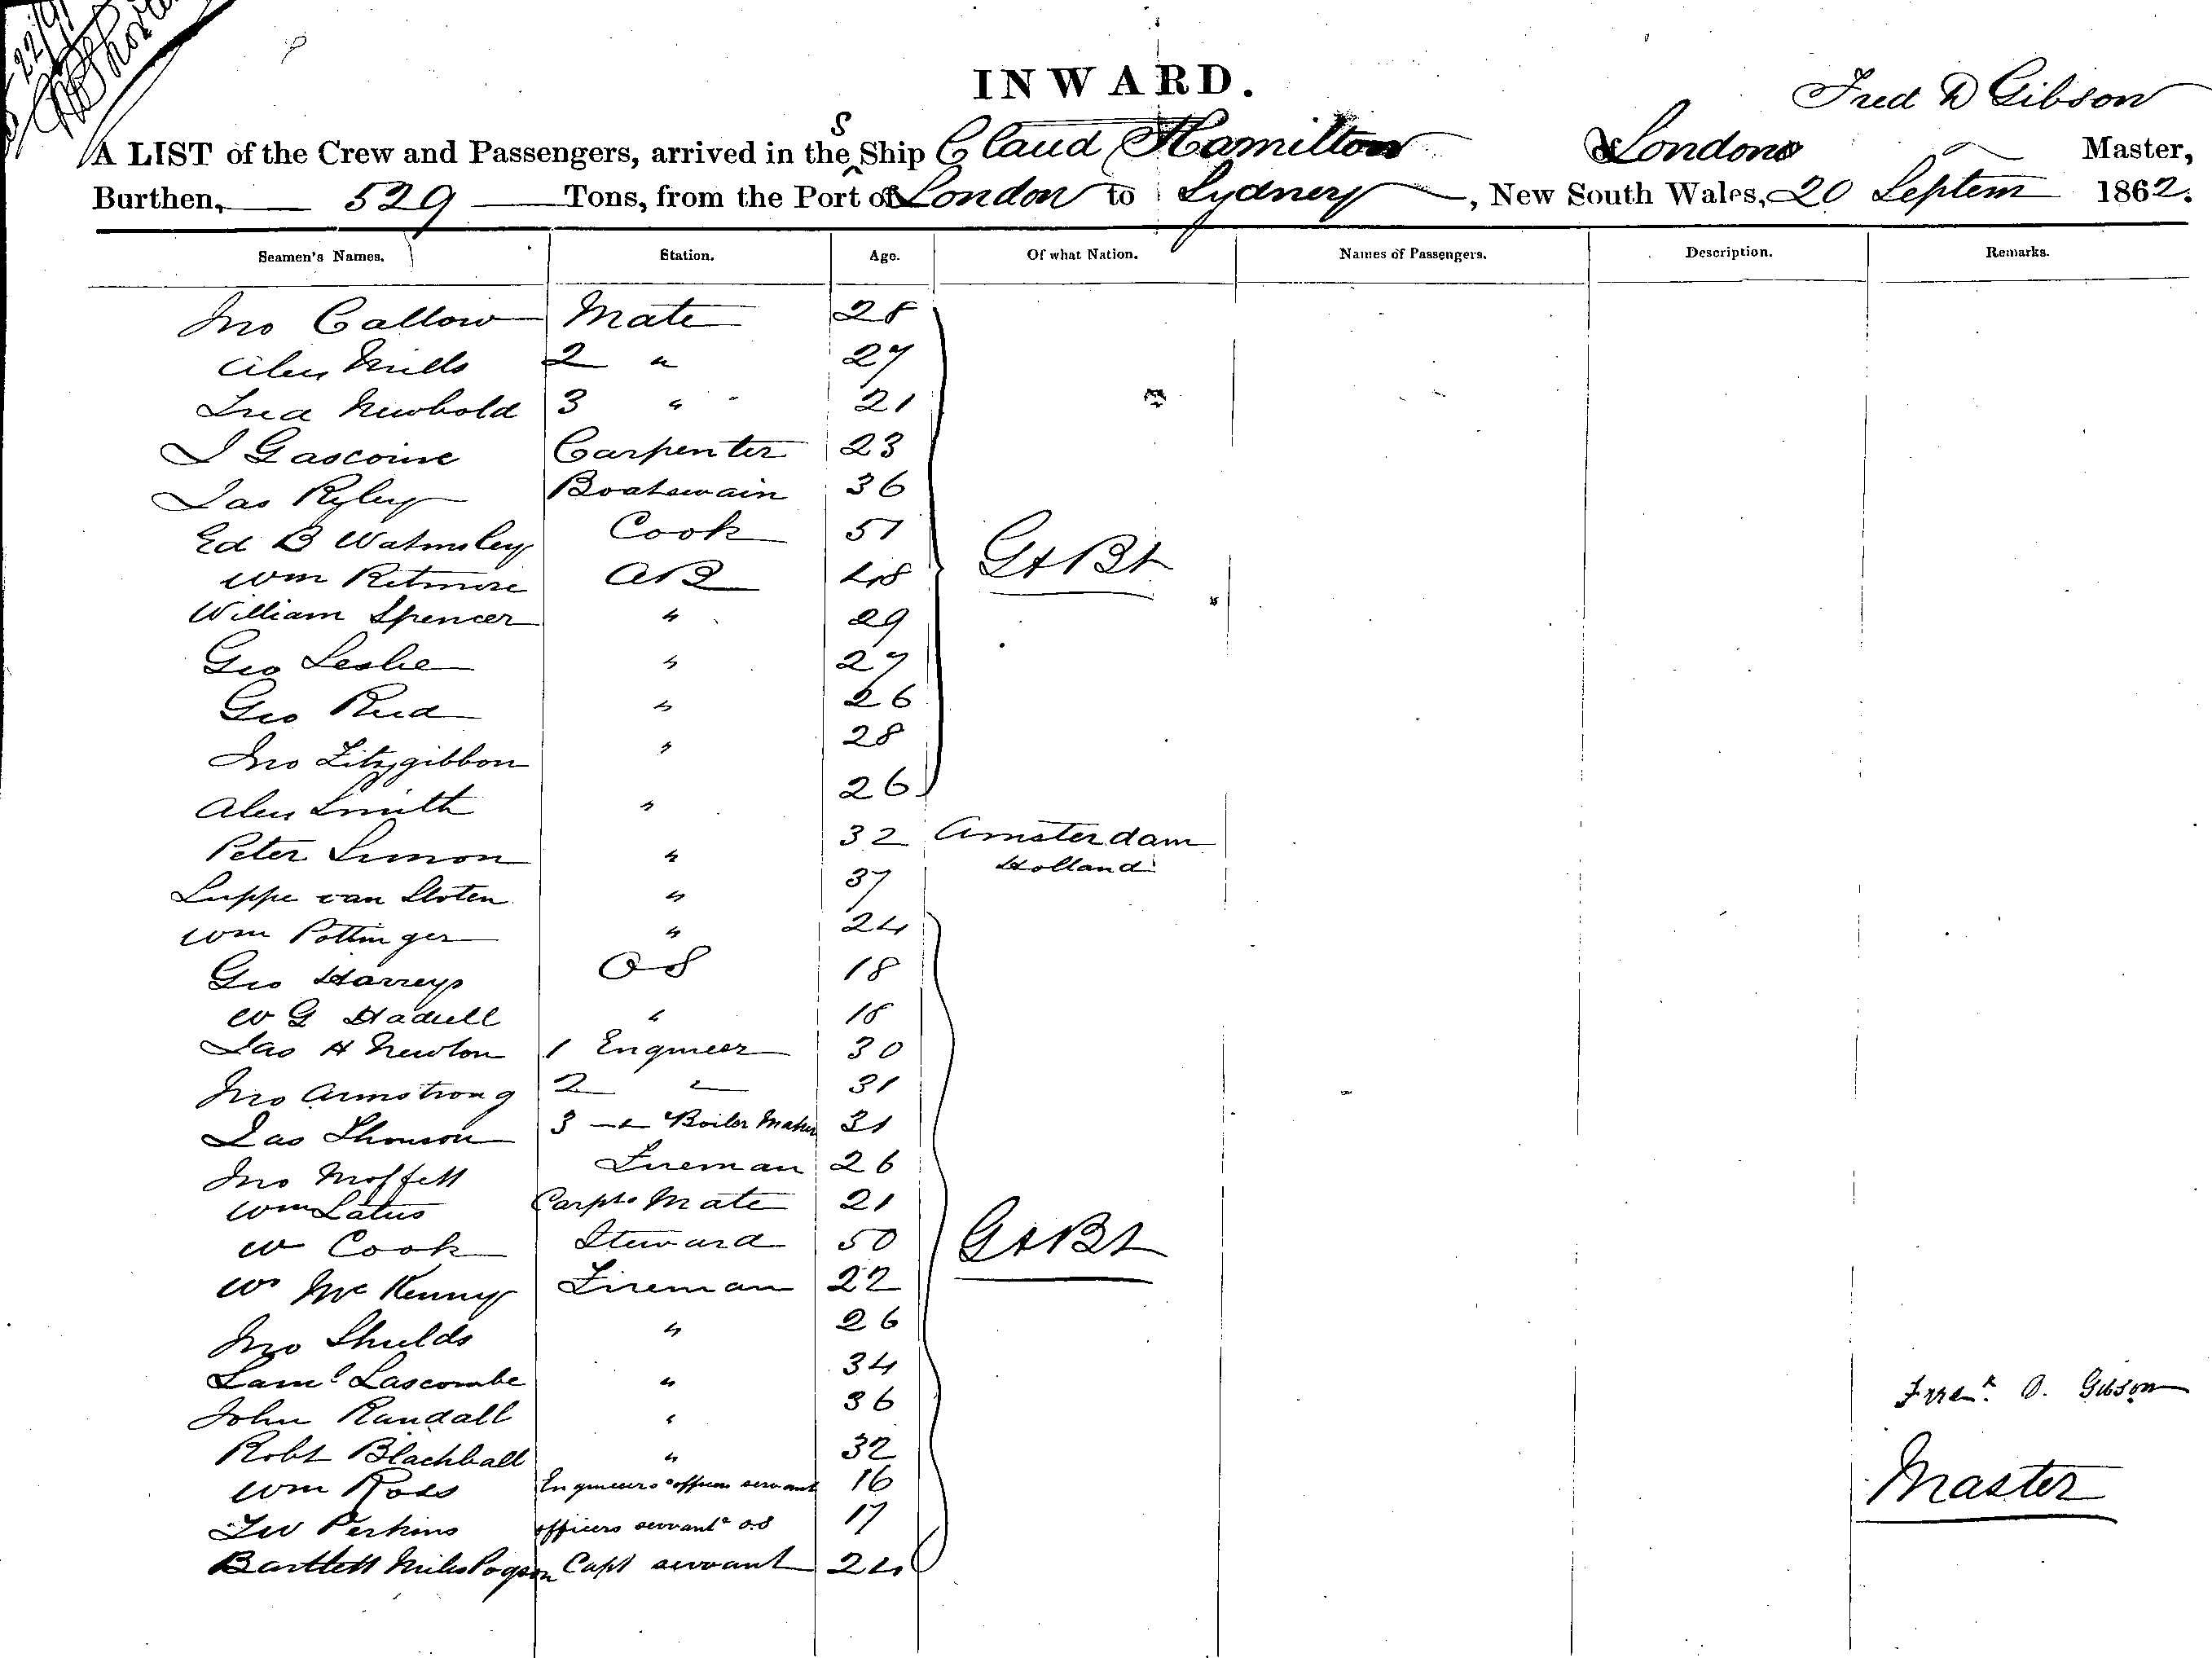 INWARD.
Fred D Gibson
A LIST of the Crew and Passengers, arrived in the S Ship Claud Hamilton of London Master,
Burthen, 529 Tons, from the Port of London to Sydney, New South Wales, 20 Septem 1862.
Seamen's Names. Station. Age. Of what Nation. Names of Passengers. Description. Remarks.
Jno Callow Mate 28
Alex Mills 2 " 27
Fred Newbold 3 " 21
J Gascoine Carpenter 23
Jas Ryley Boatswain 36
Ed B Watmsley Cook 51
Wm Ritmore AB 48 Gt Bt
William Spencer " 29
Geo Leslie " 27
Geo Reid " 26
Jno Fitzgibbon " 28
Alex Smith " 26
Peter Simon " 32 Amsterdam
Luppe van Sloten " 37 Holland
Wm Pottinger " 24
Geo Harreys OS 18
W G " 18
Jas H Newton 1 Engineer 30
Jno Armstrong 2 " 31
Jas Thomson 3 " Boiler Maker 31
Jno Moffett Fireman 26
Wm Latus Carptr Mate 21
W Cook Steward 50 Gt Bt
W Mc Kenny Fireman 22
Jno Shields " 26
Saml Lascombe " 34
John Randall " 36
Fredk D. Gibson
Robt Blackhall " 32
Wm Ross Engineers officers servant 16
Master
Perkins officers servant OS 17
Bartlett Miles Pogson Capt servant 24